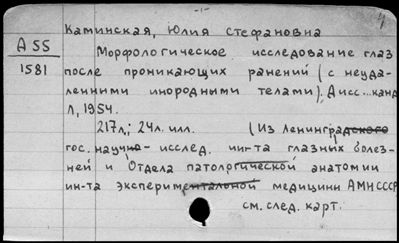 -1-
4
Каминская, Юлия Стефановна
А 55
1581
Морфологическое исследование глаз
после проникающих ранений (с неуда-
ленными инородными телами). Дисс... канд
Л, 1954.
217л,; 24л. илл. (Из Ленинградского
гос. научно-исслед. ин-та глазных болез-
ней и Отдела патологической анатомии
ин-та экспериментальной медицины АМН СССР
см. след. карт.